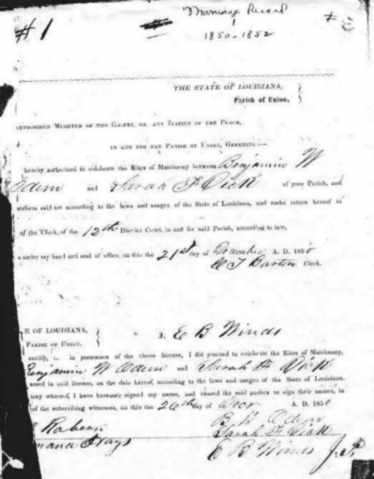 #1
Marriage Record
1850-1852
THE STATE OF LOUISIANA,
Parish of Union,
MINISTER OF THE GOSPEL, OR ANY JUSTICE OF THE PEACE,
IN AND FOR THE PARISH OF UNION, GREETING:
hereby authorized to celebrate the Rites of Matrimony between Benjamin W
Odom and Sarah F Dick of your Parish, and
according to the laws and usages of the State of Louisiana, and make return hereof to
of the Clerk, of the 12th District Court, in and for said Parish, according to law,
under my hand and seal of office, on this the 21st day of December A. D. 1850
Barton Clerk.
E OF LOUISIANA,
PARISH OF UNION.
I, E B Winds
in pursuance of the above license, I did proceed to celebrate the Rites of Matrimony,
Benjamin W Odom and Sarah F Dick
named in said license, on the date hereof, according to the laws and usages of the State of Louisiana.
whereof, I have hereunto signed my name, and caused the said parties to sign their names, in
of the subscribing witnesses, on this the 26th day of A. D. 1850
B W Odom
Sarah F Dick
E B Winds J.P.